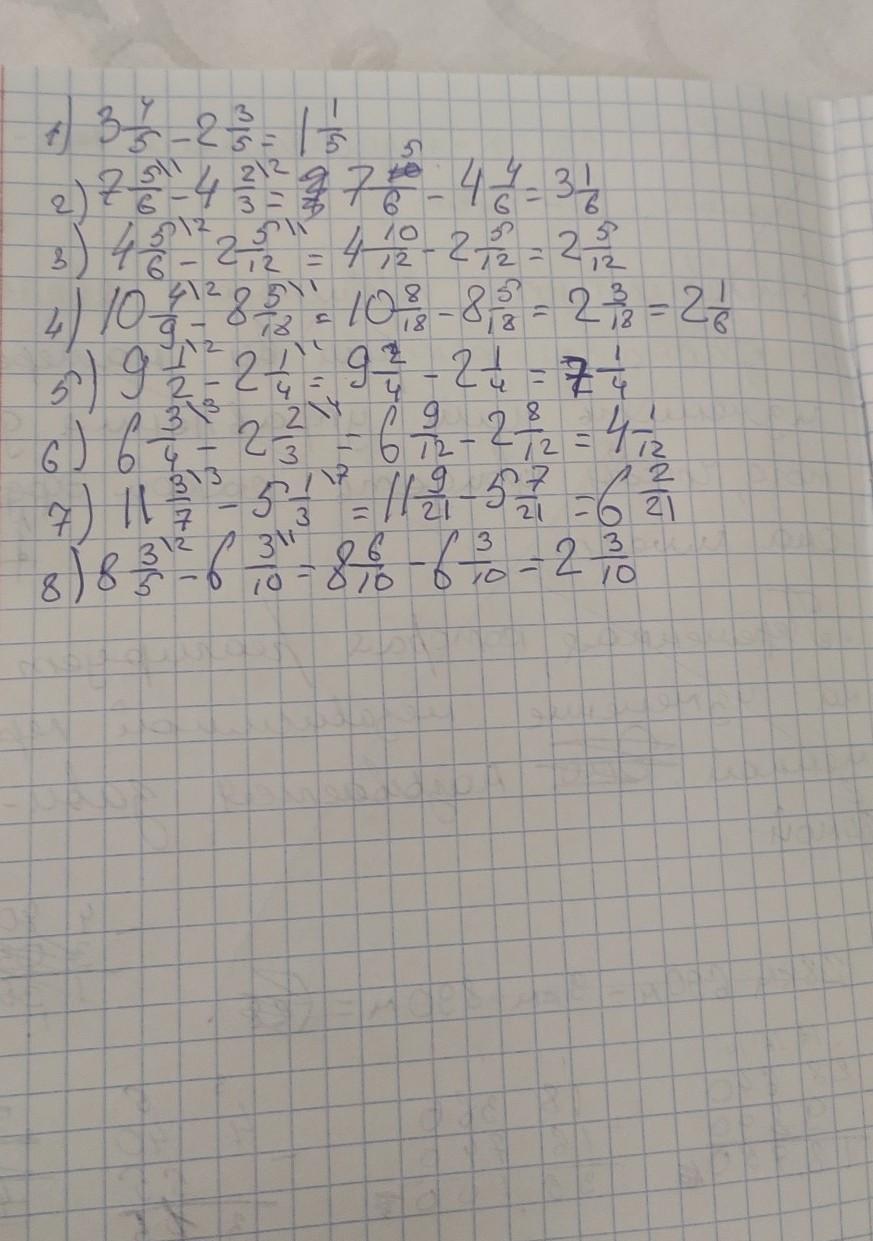 1) 3 4/5 - 2 3/5 = 1 1/5
2) 7 5\1/6 - 4 2\2/3 = 7 5/6 - 4 4/6 = 3 1/6
3) 4 5\2/6 - 2 5\1/12 = 4 10/12 - 2 5/12 = 2 5/12
4) 10 4\2/9 - 8 5\1/18 = 10 8/18 - 8 5/18 = 2 3/18 = 2 1/6
5) 9 1\2/2 - 2 1\1/4 = 9 2/4 - 2 1/4 = 7 1/4
6) 6 3\3/4 - 2 2\4/3 = 6 9/12 - 2 8/12 = 4 1/12
7) 11 3\3/7 - 5 1\7/3 = 11 9/21 - 5 7/21 = 6 2/21
8) 8 3\2/5 - 6 3\1/10 = 8 6/10 - 6 3/10 = 2 3/10